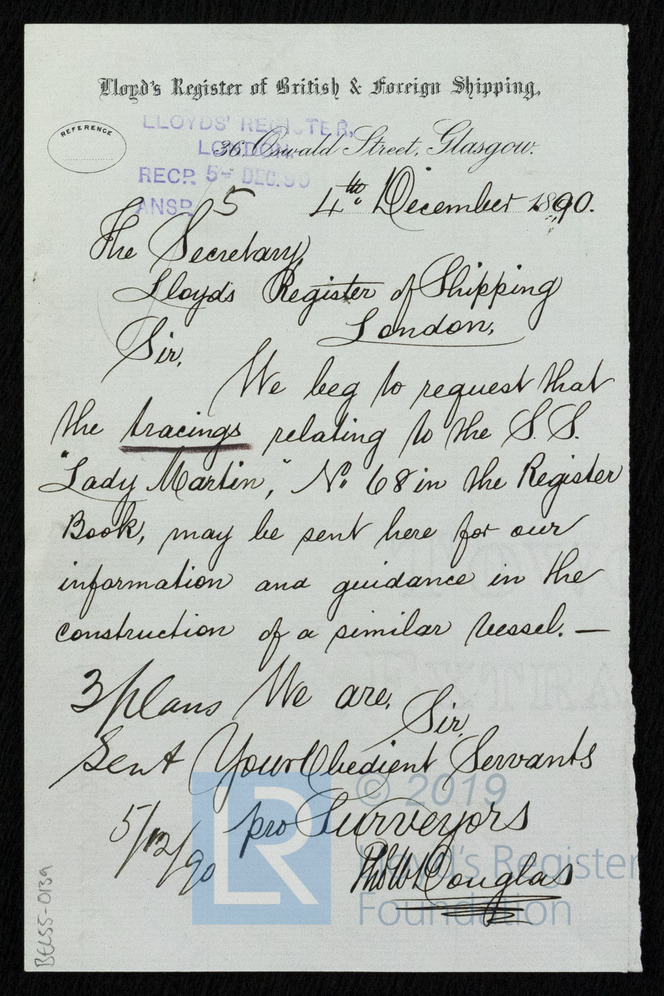 Lloyd's Register of British & Foreign Shipping,
REFERENCE
LLOYDS' REGISTER,
LONDON.
36, Oswald Street, Glasgow.
RECP. 5- DEC. 90
ANSR. 5
4th December 1890.
The Secretary,
Lloyds Register of Shipping
London,
Sir,
We beg to request that
the tracings relating to the S.S.
"Lady Martin," No. 68 in the Register
Book, may be sent here for our
information and guidance in the
construction of a similar vessel. —
3 plans We are,
Sir,
Sent Your Obedient Servants
5/12/90 pro Surveyors
Douglas
© 2019
LR
Lloyd's Register
Foundation
BEL55-0139